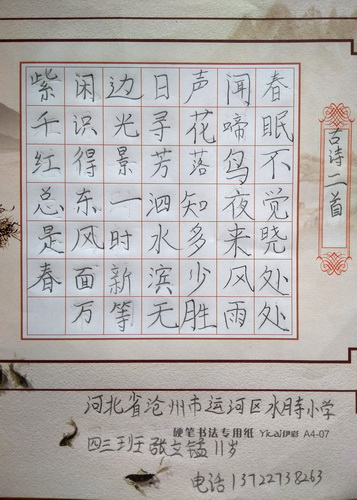 古诗二首
春眠不觉晓处处
闻啼鸟夜来风雨
声花落知多少胜
日寻芳泗水滨无
边光景一时新等
闲识得东风面万
紫千红总是春
河北省沧州市运河区水月寺小学
硬笔书法专用纸 Yicai伊彩 A4-07
四三班 张文锰 11岁
电话 13722738263